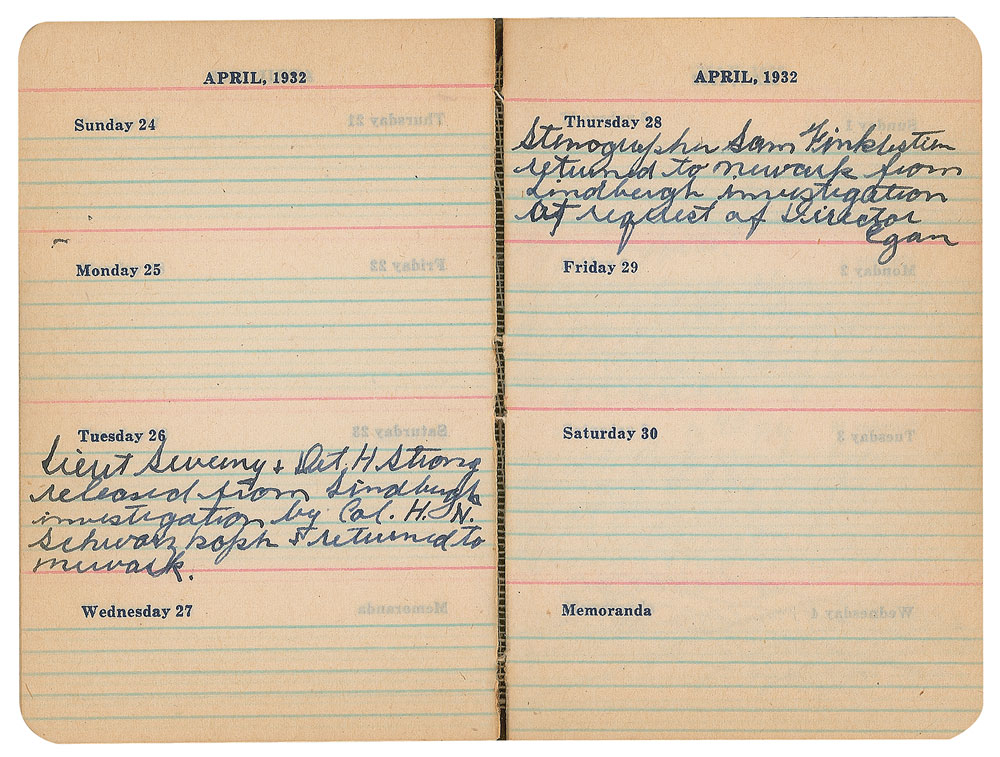 APRIL, 1932
Sunday 24
Monday 25
Tuesday 26
Lieut Sweeny + Det. H Strong
released from Lindbergh
investigation by Col. H. N.
Schwarzkoph & returned to
newark.
Wednesday 27
APRIL, 1932
Thursday 28
Stenographer Sam Finklestien
returned to newark from
Lindbergh investigation
At request of Director
Egan
Friday 29
Saturday 30
Memoranda